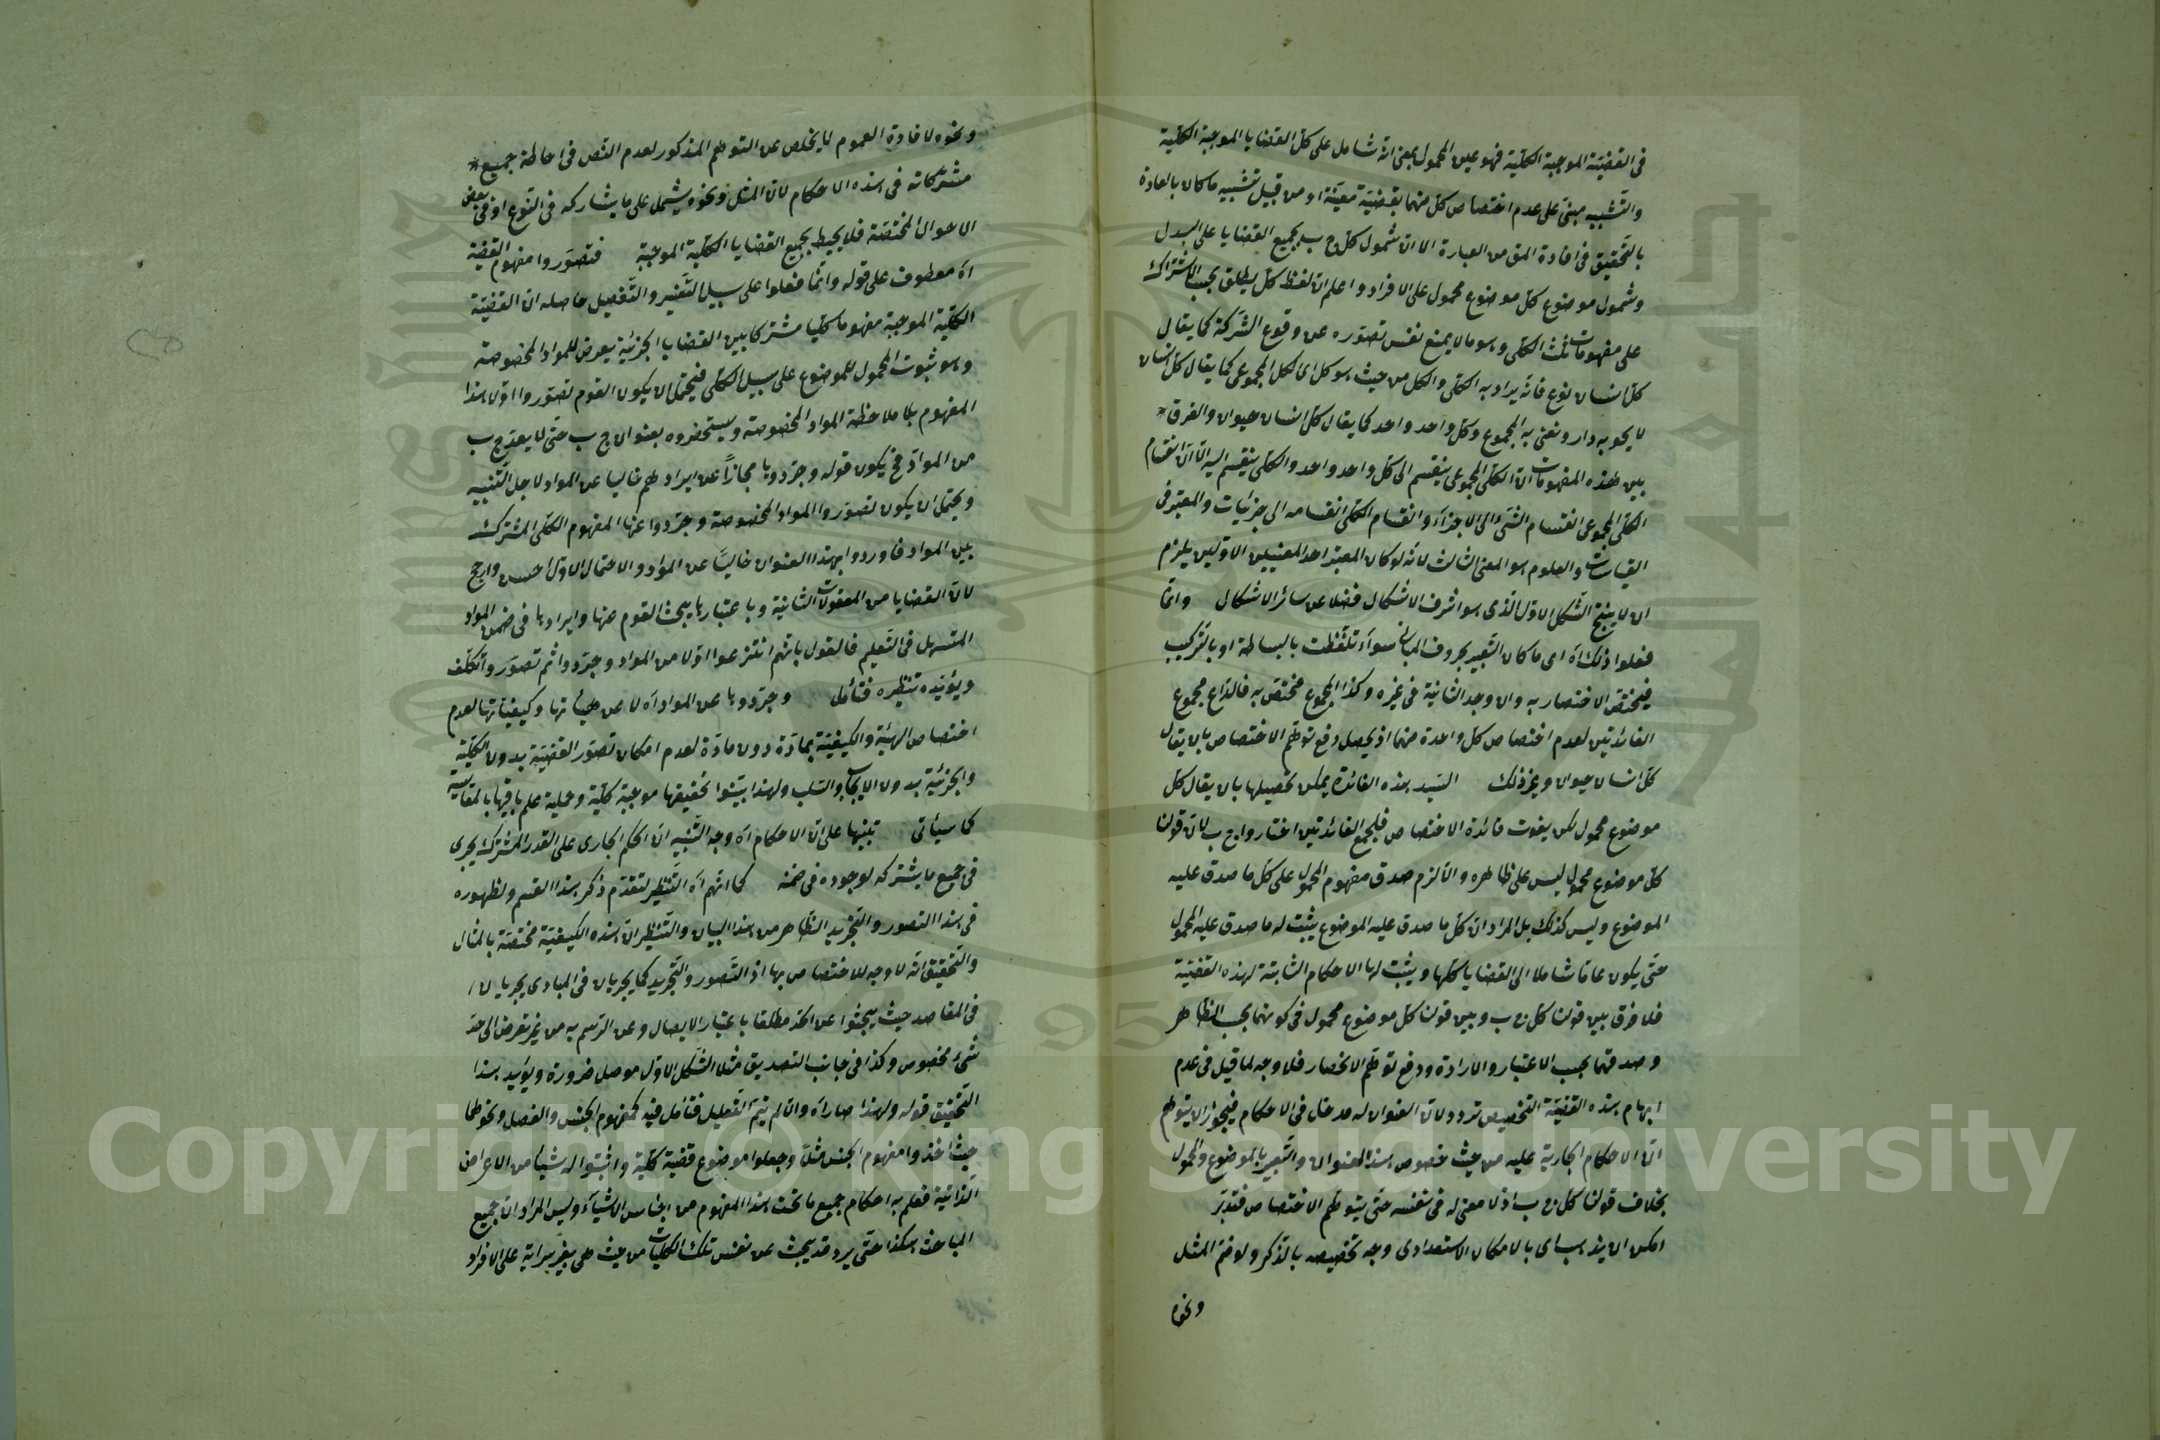 فى القضية الموجبة الكلية فهو عين المحمول بمعنى انه شامل على كل القضايا الموجبة الكلية
والتشبيه مبنى على عدم اختصاص كل منهما بقضية معينة او من قبيل تشبيه ما كان بالعادة
بالتحقيق فى افادة المق من العبارة الا ان شمول كل ج ب لجميع القضايا على البدل
وشمول موضوع كل موضوع محمول على الافراد واعلم ان لفظ كل يطلق بحسب الاشتراك
على مفهومات ثلث الكلى وهو ما لا يمنع نفس تصوره عن وقوع الشركة كما يقال
كل انسان نوع فانه يراد به الكلى والكل من حيث هو كل اى الكل المجموعى كما يقال كل انسان
لا يحويه دار ونعنى به المجموع وكل واحد واحد كما يقال كل انسان حيوان والفرق
بين هذه المفهومات ان الكلى المجموعى ينقسم الى كل واحد واحد والكلى ينقسم اليه الا ان انقسام
الكلى المجموعى انقسام الشئ الى الاجزاء وانقسام الكلى انقسامه الى جزئيات والمعتبر فى
القياسات والعلوم هو المعنى الثالث لانه لو كان المعتبر احد المعنيين الاولين يلزم
ان لا ينتج الشكل الاول الذى هو اشرف الاشكال فضلا عن سائر الاشكال وانما
فعلوا ذلك اه اى ما كان التعبير بحروف المبانى سواء تلفظت بالبساطة او بالتركيب
فيختص الاختصار به وان وجد الثانية فى غيره وكذا المجموع مختص به فالداع مجموع
الفائدتين لعدم اختصاص كل واحدة منهما اذ يحصل دفع توهم الاختصاص بان يقال
كل انسان حيوان وغير ذلك السيد هذه الفائدة يمكن تحصيلها بان يقال كل
موضوع محمول لكن يفوت فائدة الاختصاص فلجمع الفائدتين اختاروا ج ب لان قولنا
كل موضوع محمول ليس على ظاهره والا لزم صدق مفهوم المحمول على كل ما صدق عليه
الموضوع وليس كذلك بل المراد ان كل ما صدق عليه الموضوع يثبت له ما صدق عليه المحمول
حتى يكون عاما شاملا الى القضايا كلها ويثبت لها الاحكام الثابتة لهذه القضية
فلا فرق بين قولنا كل ج ب وبين قولنا كل موضوع محمول فى كونهما بحسب الظاهر
وصدقهما بحسب الاعتبار والارادة ودفع توهم الانحصار فلا وجه لما قيل فى عدم
ايهام هذه القضية التخصيص تردد لان العنوان له مدخل فى الاحكام فيجوز ان يتوهم
ان الاحكام الجارية عليه من حيث خصوص هذا العنوان والتعبير بالموضوع والمحمول
بخلاف قولنا كل ج ب اذ لا معنى له فى نفسه حتى يتوهم الاختصاص فتدبر
امكن ان يذهب اى بالامكان الاستعدادى وجه تخصيصه بالذكر ولو ضم المثل
ونحوه
ونحوه لافادة العموم لا يخلص عن التوهم المذكور لعدم النص فى احاطة جميع
مشركاته فى هذه الاحكام لان المثل ونحوه يشمل على ما يشاركه فى النوع او فى بعض
الاحوال المختصة فلا يحيط بجميع القضايا الكلية الموجبة فتصوروا مفهوم القضية
اه معطوف على قوله وانما فعلوا على سبيل التفسير والتفصيل حاصله ان القضية
الكلية الموجبة مفهوما كليا مشتركا بين القضايا الجزئية يعرض للمواد المخصوصة
وهو ثبوت المحمول للموضوع على سبيل الكلى فيحتمل ان يكون القوم تصوروا اولا هذا
المفهوم بلا ملاحظة المواد المخصوصة ويستحضروه بعنوان ج ب حتى لا يعد ج ب
من المواد فح يكون قوله وجردوها مجازاً عن ايرادهم خاليا عن المواد لاجل التنبيه
ويحتمل ان يكون تصوروا المواد المخصوصة وجردوا عنها المفهوم الكلى المشترك
بين المواد فاوردوا بهذا العنوان خالياً عن المواد والاحتمال الاول احسن وارجح
لان القضايا من المعقولات الثانية وباعتبارها يبحث القوم عنها وايرادها فى ضمن المواد
لتسهيل فى التعليم فالقول بانهم انتزعوا اولا من المواد وجردوا ثم تصوروا تكلف
ويؤيده تنظيره فتأمل وجردوها عن المواد اه لا عن هيأتها وكيفياتها لعدم
اختصاص الهيئة والكيفية بمادة دون مادة لعدم امكان تصور القضية بدون الكلية
والجزئية بدون الايجاب والسلب ولهذا بينوا تحقيقها موجبة كلية وحملية علم باقيها بالمقايسة
كما سيأتى تنبيها على ان الاحكام اه وجه التنبيه ان الحكم الجارى على القدر المشترك يجرى
فى جميع ما يشتركه لوجوده فى ضمنه كما انهم اه التنظير لتقدم ذكر هذا القسم ولظهوره
فى هذا التصور والتجريد الظاهر من هذا البيان والتنظير ان هذه الكيفية مختصة بالمثال
والتحقيق انه لا وجه للاختصاص بها اذ التصور والتجريد كما يجريان فى المبادى يجريان
فى المقاصد حيث يبحثوا عن الحد مطلقا باعتبار الايصال وعن الرسم به من غير تعرض الى حد
شئ مخصوص وكذا فى جانب التصديق مثلا الشكل الاول موصل ضرورة ويؤيد هذا
التحقيق قوله ولهذا صار اه والا لم يتم التعليل فتأمل فيه كمفهوم الجنس والفصل ونحوهما
حيث اخذوا مفهوم الجنس مثلا وجعلوا موضوع قضية كلية واثبتوا له شيأ من الاعراض
الذاتية فعلم به احكام جميع ما تحت هذا المفهوم من اجناس الاشياء وليس المراد ان جميع
المباحث هكذا حتى يرد قد يبحث عن نفس تلك الكليات من حيث هى بغير سراية على الافراد
Copyright © King Saud University